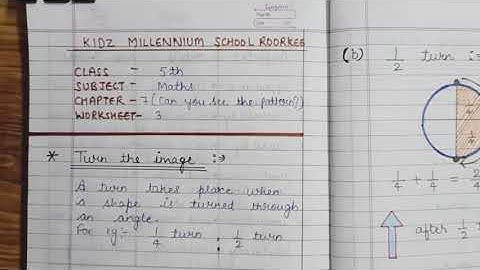 KIDZ MILLENNIUM SCHOOL ROORKEE
CLASS - 5th
SUBJECT - Maths
CHAPTER - 7 (Can you see the pattern?)
WORKSHEET - 3
* Turn the image :→
A turn takes place when
a shape is turned through
an angle.
For eg :- 1/4 turn , 1/2 turn
(b) 1/2 turn :-
1/4
1/4
1/4 + 1/4 = 2/4
after 1/2 t